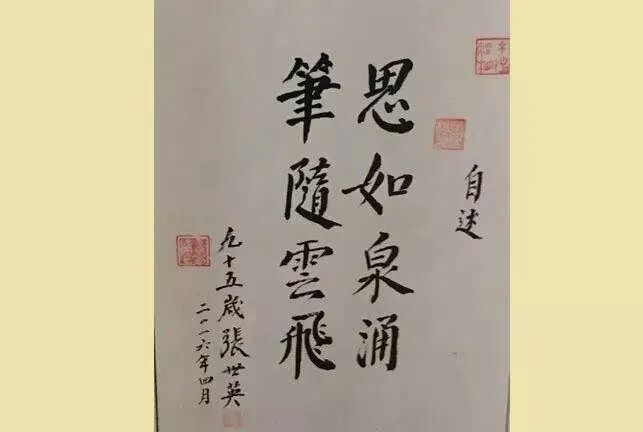 自述
思如泉涌
筆隨雲飛
九十五歲張世英
二〇一六年四月